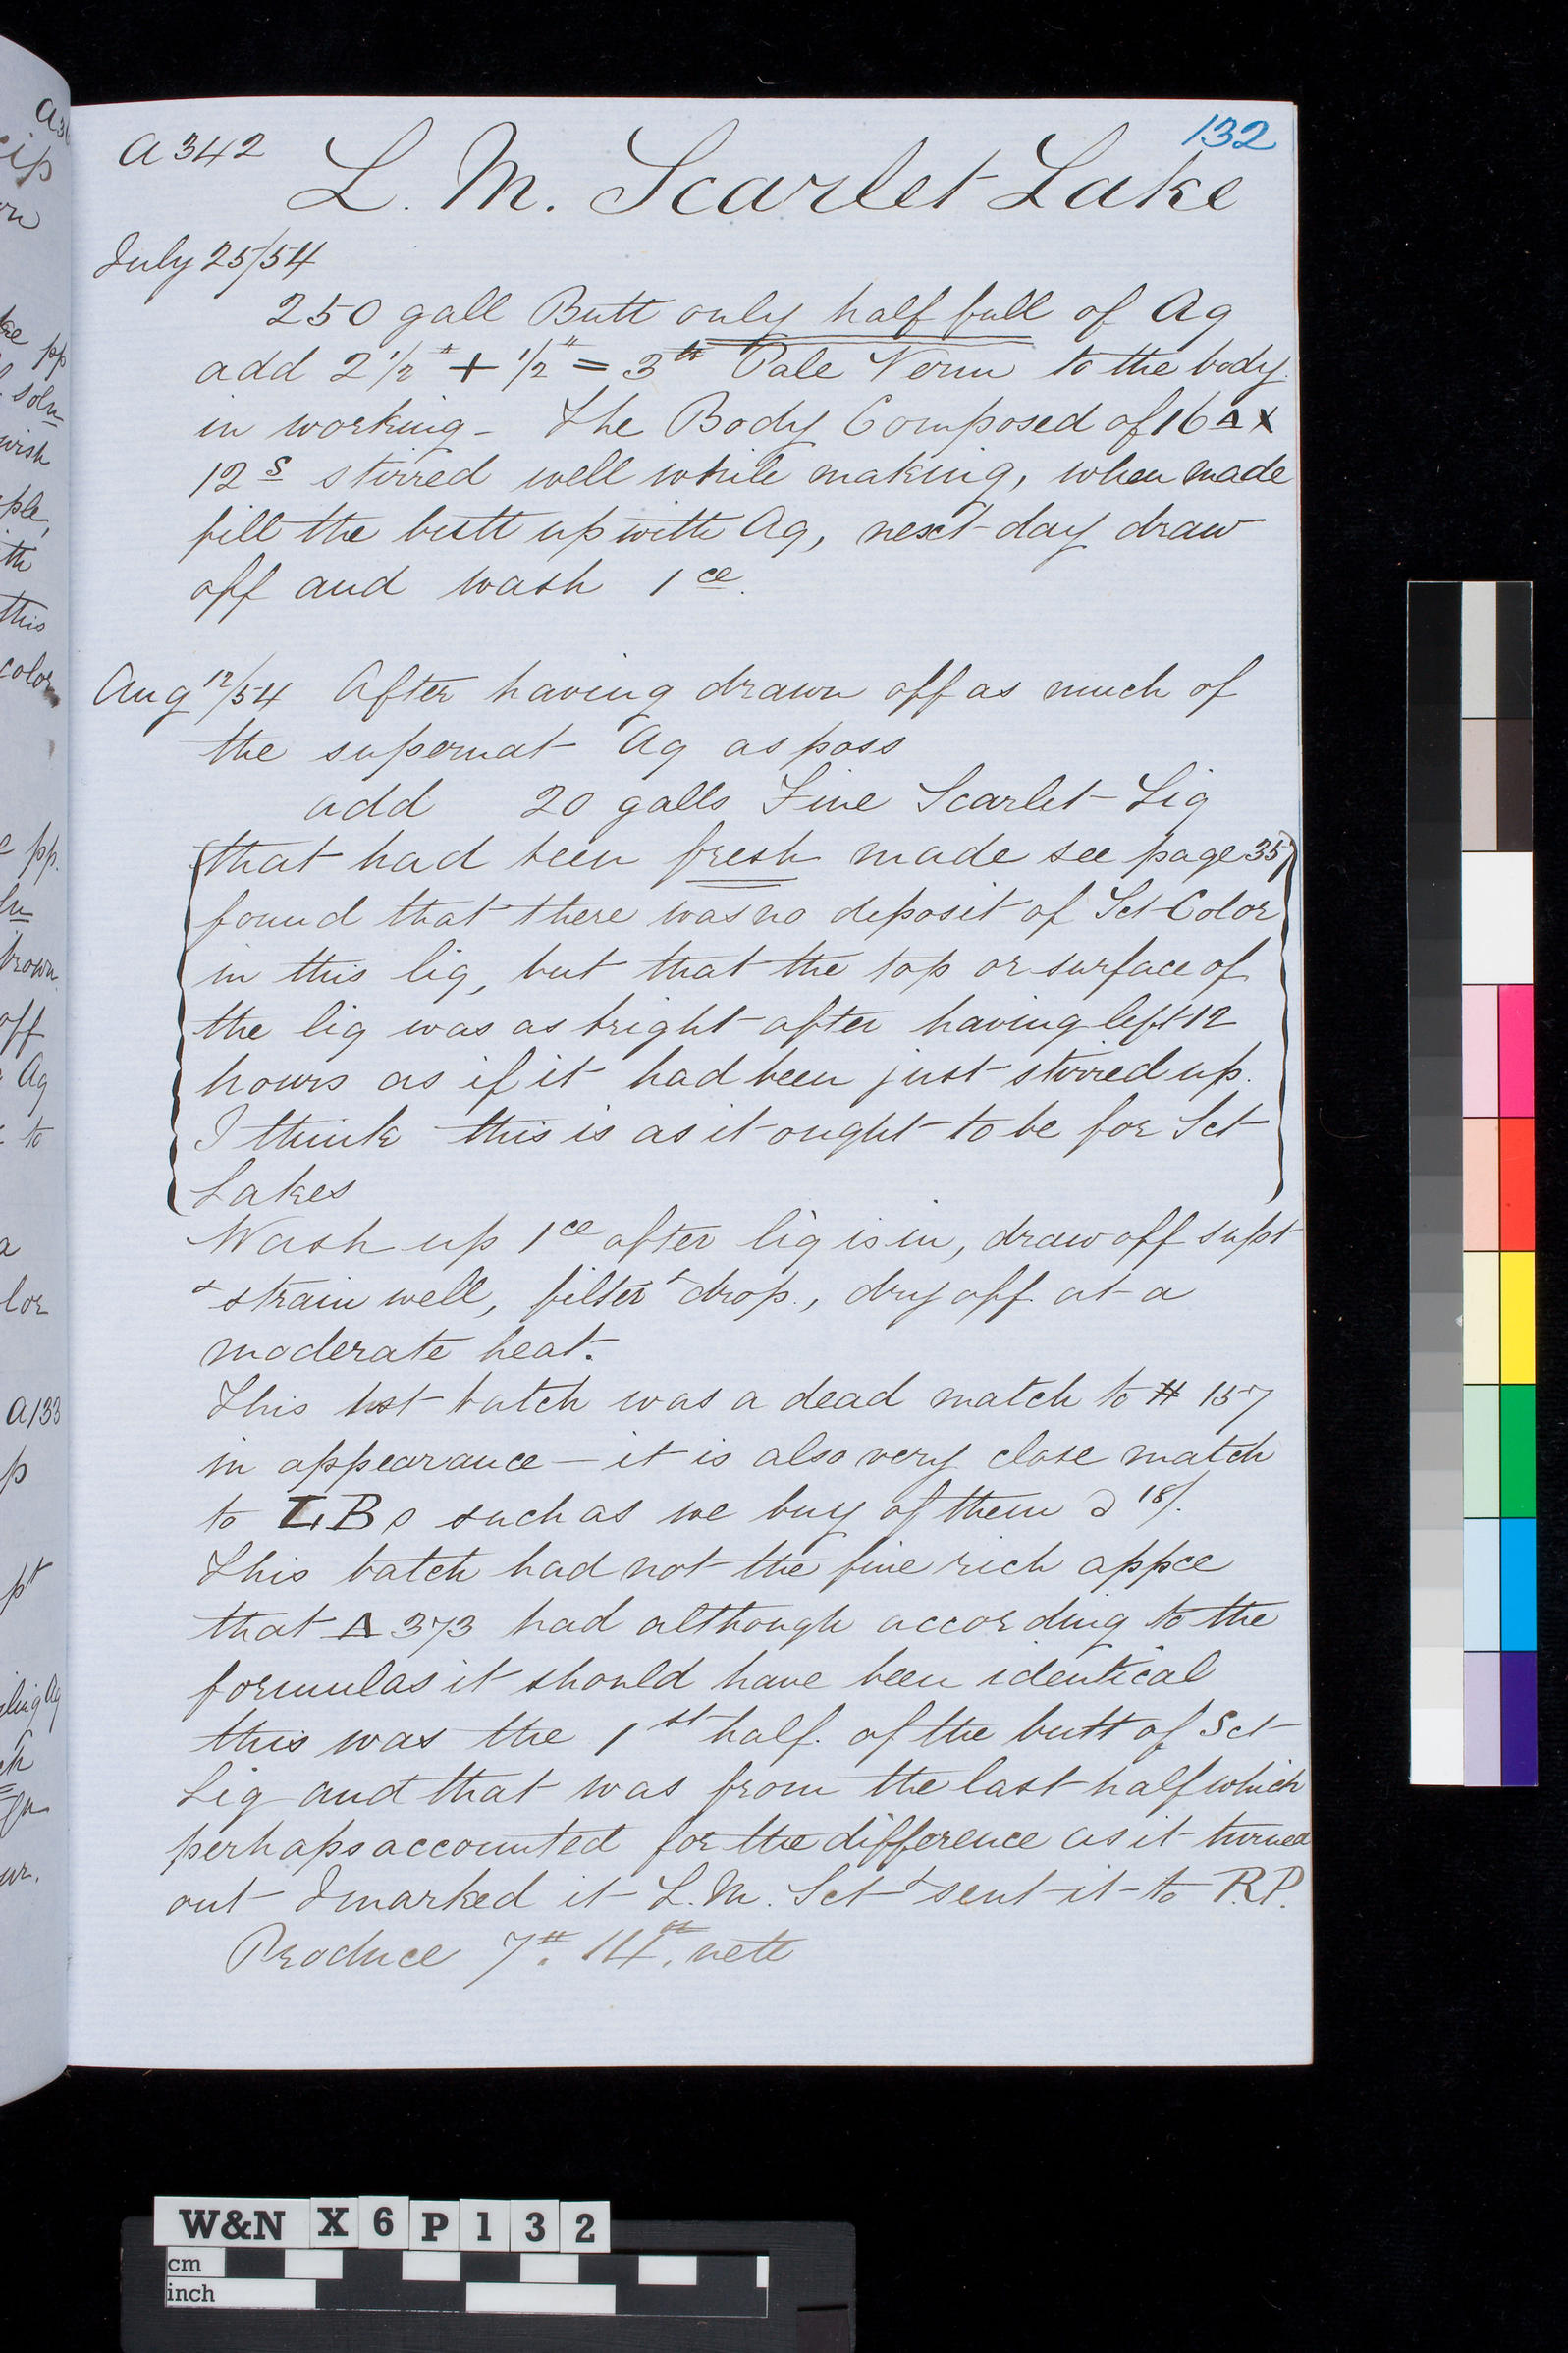 132
A342
L. M. Scarlet Lake
July 25/54
250 gall Butt only half full of Aq
add 2 1/2 # + 1/2 # = 3 # Pale Verm to the body
in working - The Body Composed of 16 Δ X
12 S stirred well while making, when made
fill the butt up with Aq, next day draw
off and wash 1ce.
Aug 12/54 After having drawn off as much of
the supernat Aq as poss
add 20 galls Fine Scarlet Liq
(that had been fresh made see page 35)
found that there was no deposit of Sct Color
in this liq, but that the top or surface of
the liq was as bright after having left 12
hours as if it had been just stirred up.
I think this is as it ought to be for Sct
Lakes
Wash up 1ce after liq is in, draw off supt
& strain well, filter & drop, dry off at a
moderate heat.
This batch was a dead match to # 157
in appearance - it is also very close match
to LBs such as we buy of them @ 18/.
This batch had not the fine rich appce
that Δ 373 had although according to the
formulas it should have been identical
this was the 1st half of the butt of Sct
Liq and that was from the last half which
perhaps accounted for the difference as it turned
out I marked it L.M. Sct & sent it to R.P.
Produce 7 #. 14 oz. nett
W&N X 6 P 1 3 2
cm
inch